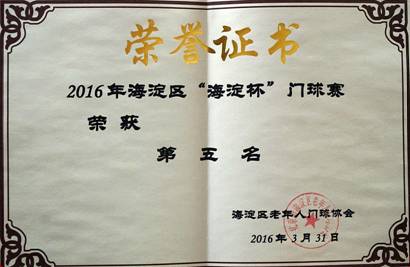 荣誉证书
2016年海淀区“海淀杯”门球赛
荣获
第五名
海淀区老年人门球协会
2016年3月31日